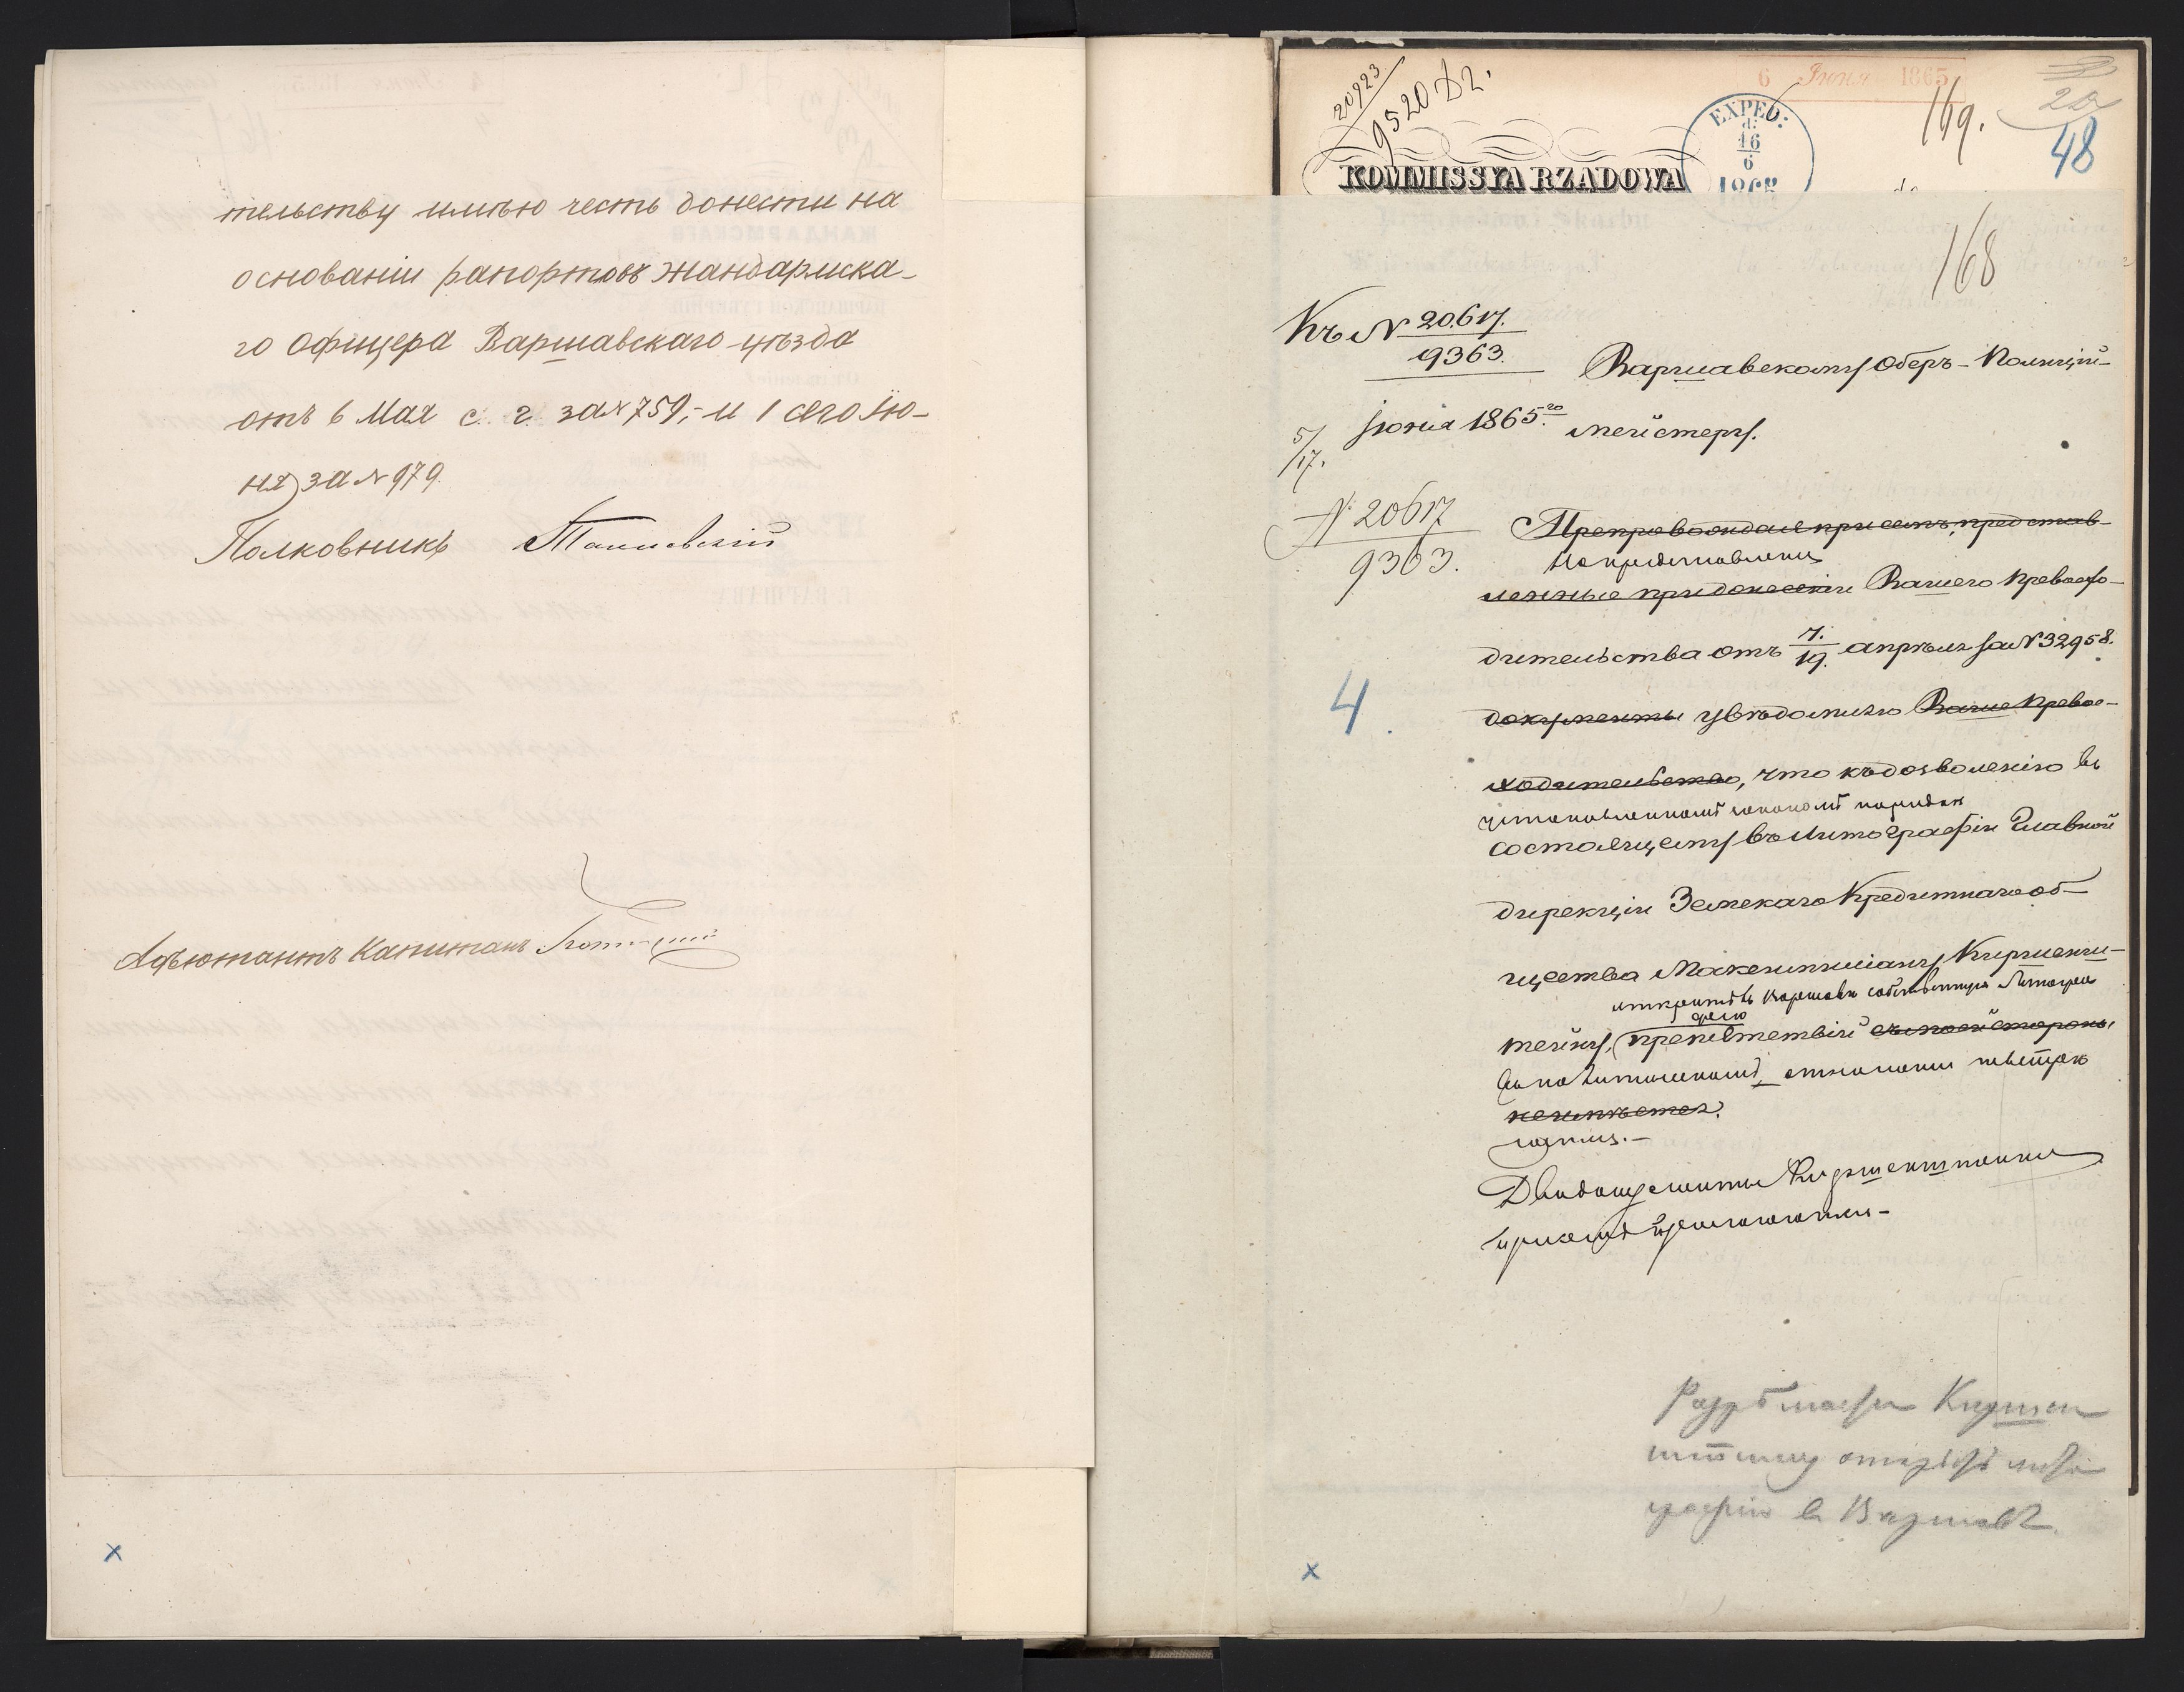 тельству имѣю честь донести на
основаніи рапортовъ жандармска-
го Офицера Варшавскаго уѣзда
отъ 6 Мая с. г. за № 759,- и 1 сего Ію-
ня за № 979.
Полковникъ
Адъютантъ Капитанъ
x
20923
9520 D2.
6 Іюня 1865
EXPED:
d:
16
6
169.
20
48
KOMMISSYA RZĄDOWA
168
Къ № 20.617.
9363.
Варшавскому Оберъ-Полицій-
5/17. Іюня 1865.го
мейстеру.
№ 20617
9363.
Препровождая при семъ, представ-
На представленіе
ленные при донесеніи Вашего Превосхо-
дительства отъ 7./19. апрѣля за № 32958.
4.
документы увѣдомляю Ваше Превос-
ходительство, что къ дозволенію въ
установленномъ закономъ порядкѣ
состоящему въ Литографіи Главной
Дирекціи Земскаго Кредитнаго об-
щества Максимиліану Киршенш-
открыть въ Варшавѣ собственную Литогра
фію
тейну, препятствій съ моей стороны
въ политическомъ отношеніи
не имѣется.
Два документы Киршенштейна
при семъ
Киршен
литo
графію въ Варшавѣ
x